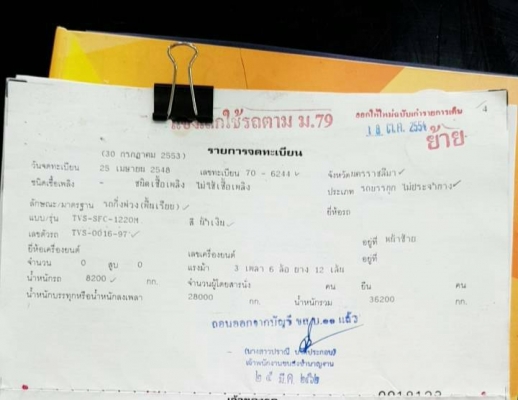 แจ้งเลิกใช้รถตาม ม.79
ออกให้ใหม่ฉบับเก่ารายการเต็ม
4
18 ต.ค. 2554
ย้าย
รายการจดทะเบียน
(30 กรกฎาคม 2553)
วันจดทะเบียน 25 เมษายน 2548 เลขทะเบียน 70 - 6244 จังหวัดนครราชสีมา
ชนิดเชื้อเพลิง - ชนิดเชื้อเพลิง ไม่ใช้เชื้อเพลิง ประเภท รถบรรทุก ไม่ประจำทาง
ลักษณะ/มาตรฐาน รถกึ่งพ่วง(พื้นเรียบ) ยี่ห้อรถ
แบบ/รุ่น TVS-SFC-1220M สี น้ำเงิน
เลขตัวรถ TVS-0016-97 อยู่ที่ หน้าซ้าย
ยี่ห้อเครื่องยนต์ เลขเครื่องยนต์ อยู่ที่
จำนวน 0 สูบ 0 แรงม้า 3 เพลา 6 ล้อ ยาง 12 เส้น
น้ำหนักรถ 8200 กก. จำนวนผู้โดยสารนั่ง คน ยืน คน
น้ำหนักบรรทุกหรือน้ำหนักลงเพลา 28000 กก. น้ำหนักรวม 36200 กก.
ถอนออกจากบัญชี ขส.บ.๑๑ แล้ว
(นางสาวปราณี
เจ้าพนักงานขนส่งชำนาญงาน
๒๕ มี.ค. ๒๕๖๒